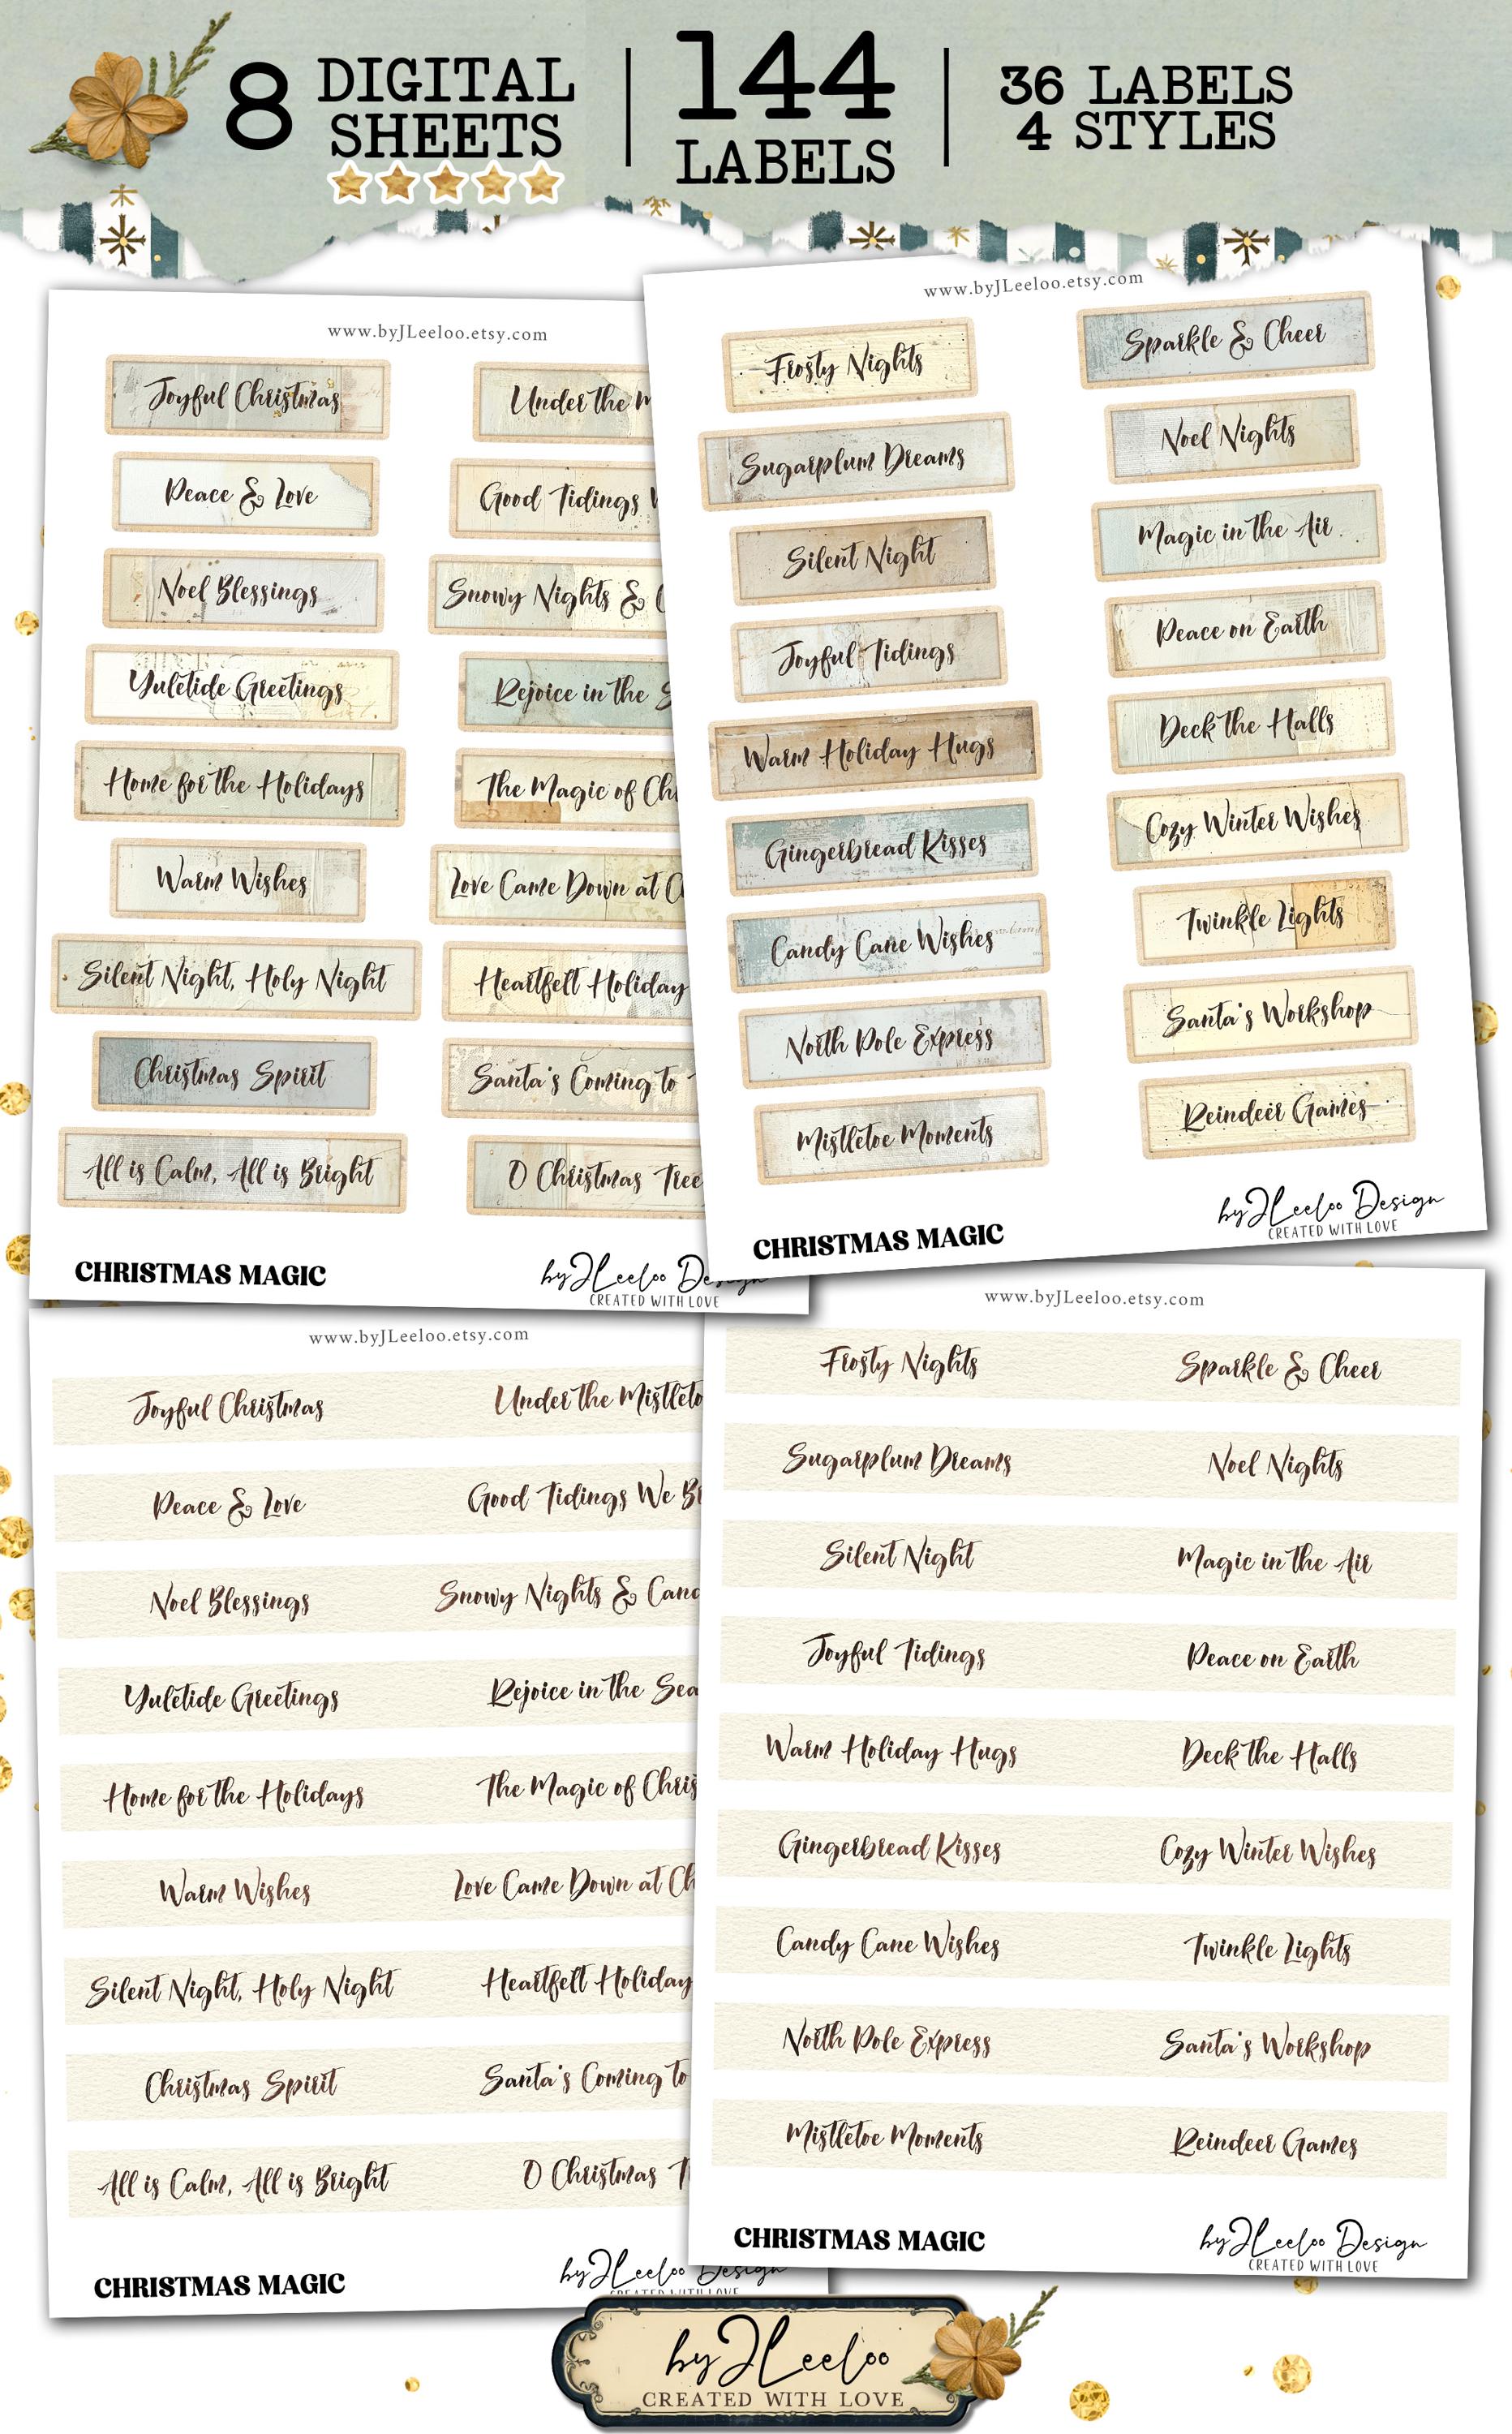 8 DIGITAL SHEETS
144 LABELS
36 LABELS
4 STYLES
www.byJLeeloo.etsy.com
Joyful Christmas
Under the
Peace & Love
Good Tidings
Noel Blessings
Snowy Nights &
Yuletide Greetings
Rejoice in the
Home for the Holidays
The Magic of
Warm Wishes
Love Came Down at
Silent Night, Holy Night
Heartfelt Holiday
Christmas Spirit
Santa's Coming to
All is Calm, All is Bright
O Christmas Tree
CHRISTMAS MAGIC
byJLeeloo Design
CREATED WITH LOVE
www.byJLeeloo.etsy.com
Frosty Nights
Sparkle & Cheer
Sugarplum Dreams
Noel Nights
Silent Night
Magic in the Air
Joyful Tidings
Peace on Earth
Warm Holiday Hugs
Deck the Halls
Gingerbread Kisses
Cozy Winter Wishes
Candy Cane Wishes
Twinkle Lights
North Pole Express
Santa's Workshop
Mistletoe Moments
Reindeer Games
CHRISTMAS MAGIC
byJLeeloo Design
CREATED WITH LOVE
www.byJLeeloo.etsy.com
Joyful Christmas
Under the Mistleto
Peace & Love
Good Tidings We
Noel Blessings
Snowy Nights &
Yuletide Greetings
Rejoice in the Sea
Home for the Holidays
The Magic of Chris
Warm Wishes
Love Came Down at
Silent Night, Holy Night
Heartfelt Holiday
Christmas Spirit
Santa's Coming to
All is Calm, All is Bright
O Christmas
CHRISTMAS MAGIC
byJLeeloo Design
CREATED WITH LOVE
www.byJLeeloo.etsy.com
Frosty Nights
Sparkle & Cheer
Sugarplum Dreams
Noel Nights
Silent Night
Magic in the Air
Joyful Tidings
Peace on Earth
Warm Holiday Hugs
Deck the Halls
Gingerbread Kisses
Cozy Winter Wishes
Candy Cane Wishes
Twinkle Lights
North Pole Express
Santa's Workshop
Mistletoe Moments
Reindeer Games
CHRISTMAS MAGIC
byJLeeloo Design
CREATED WITH LOVE
byJLeeloo
CREATED WITH LOVE